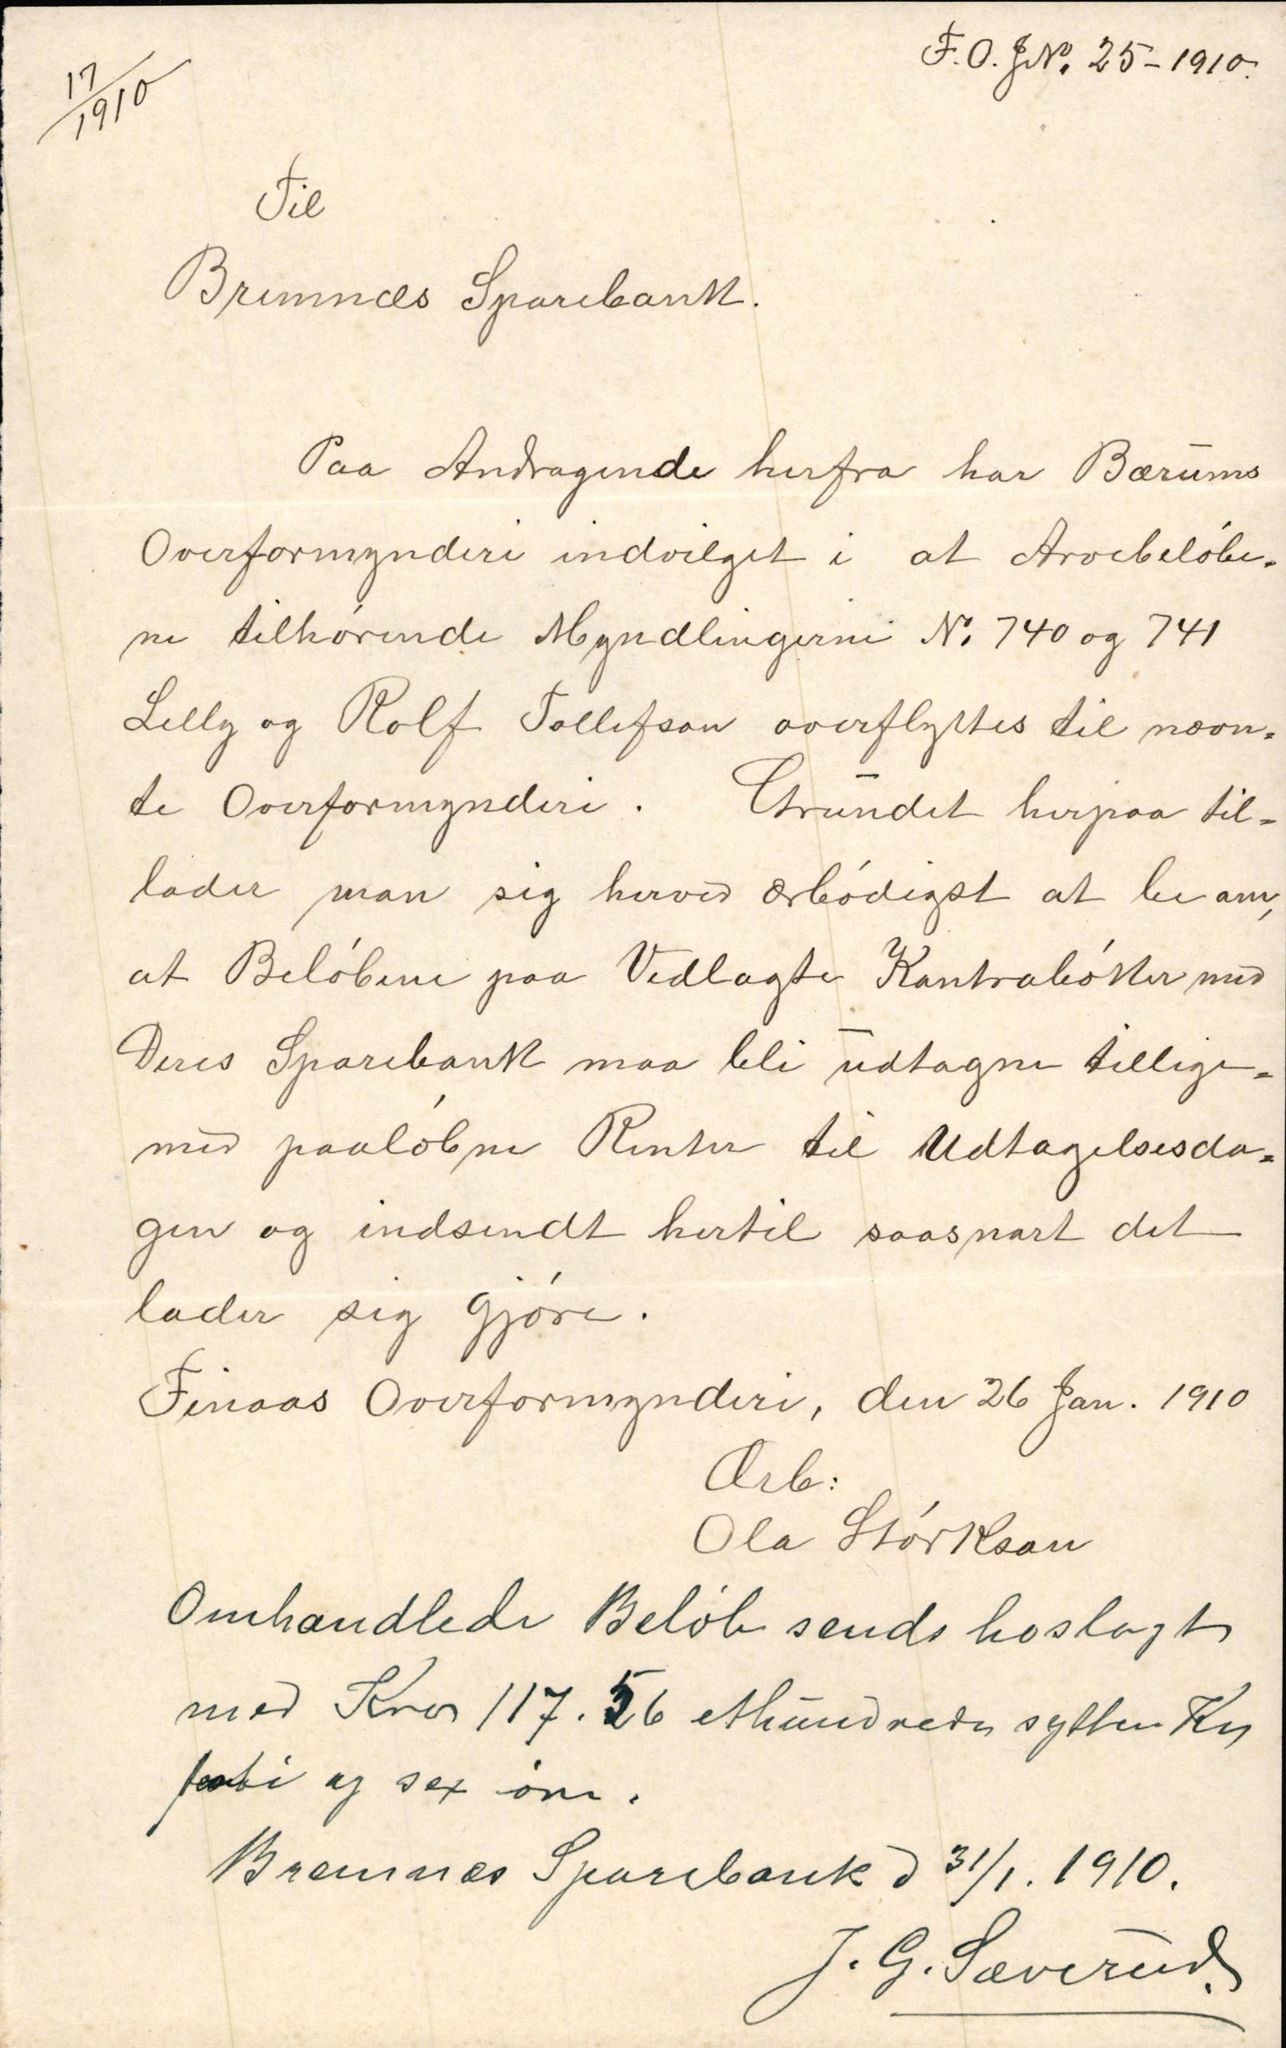 17/1910
F.O. JNo. 25-1910.
Til
Bremnæs Sparebank.
Paa Andragende herfra har Bærums
Overformynderi indvilget i at Arvebelóbe-
ne tilhórende Myndlingerne No. 740 og 741
Lelly og Rolf Tollefson overflyttes til nævn-
te Overformynderi. Grundet herpaa til-
lader man sig herved ærbódigst at be om,
at Belóbene paa Vedlagte Kontrabóker med
Deres Sparebank maa bli udtagne tillige-
med paalóbne Renter til Udtagelsesda-
gen og indsendt hertil saasnart det
lader sig gjóre.
Finaas Overformynderi, den 26 Jan. 1910
Ærb:
Ola Stórkson
Omhandlede Belób sends hoslagt
med Kror 117.56 ethundrede sytten Kr
femti og sex óre.
Bremnæs Sparebank d 31/1. 1910.
J. G. Sæverud.